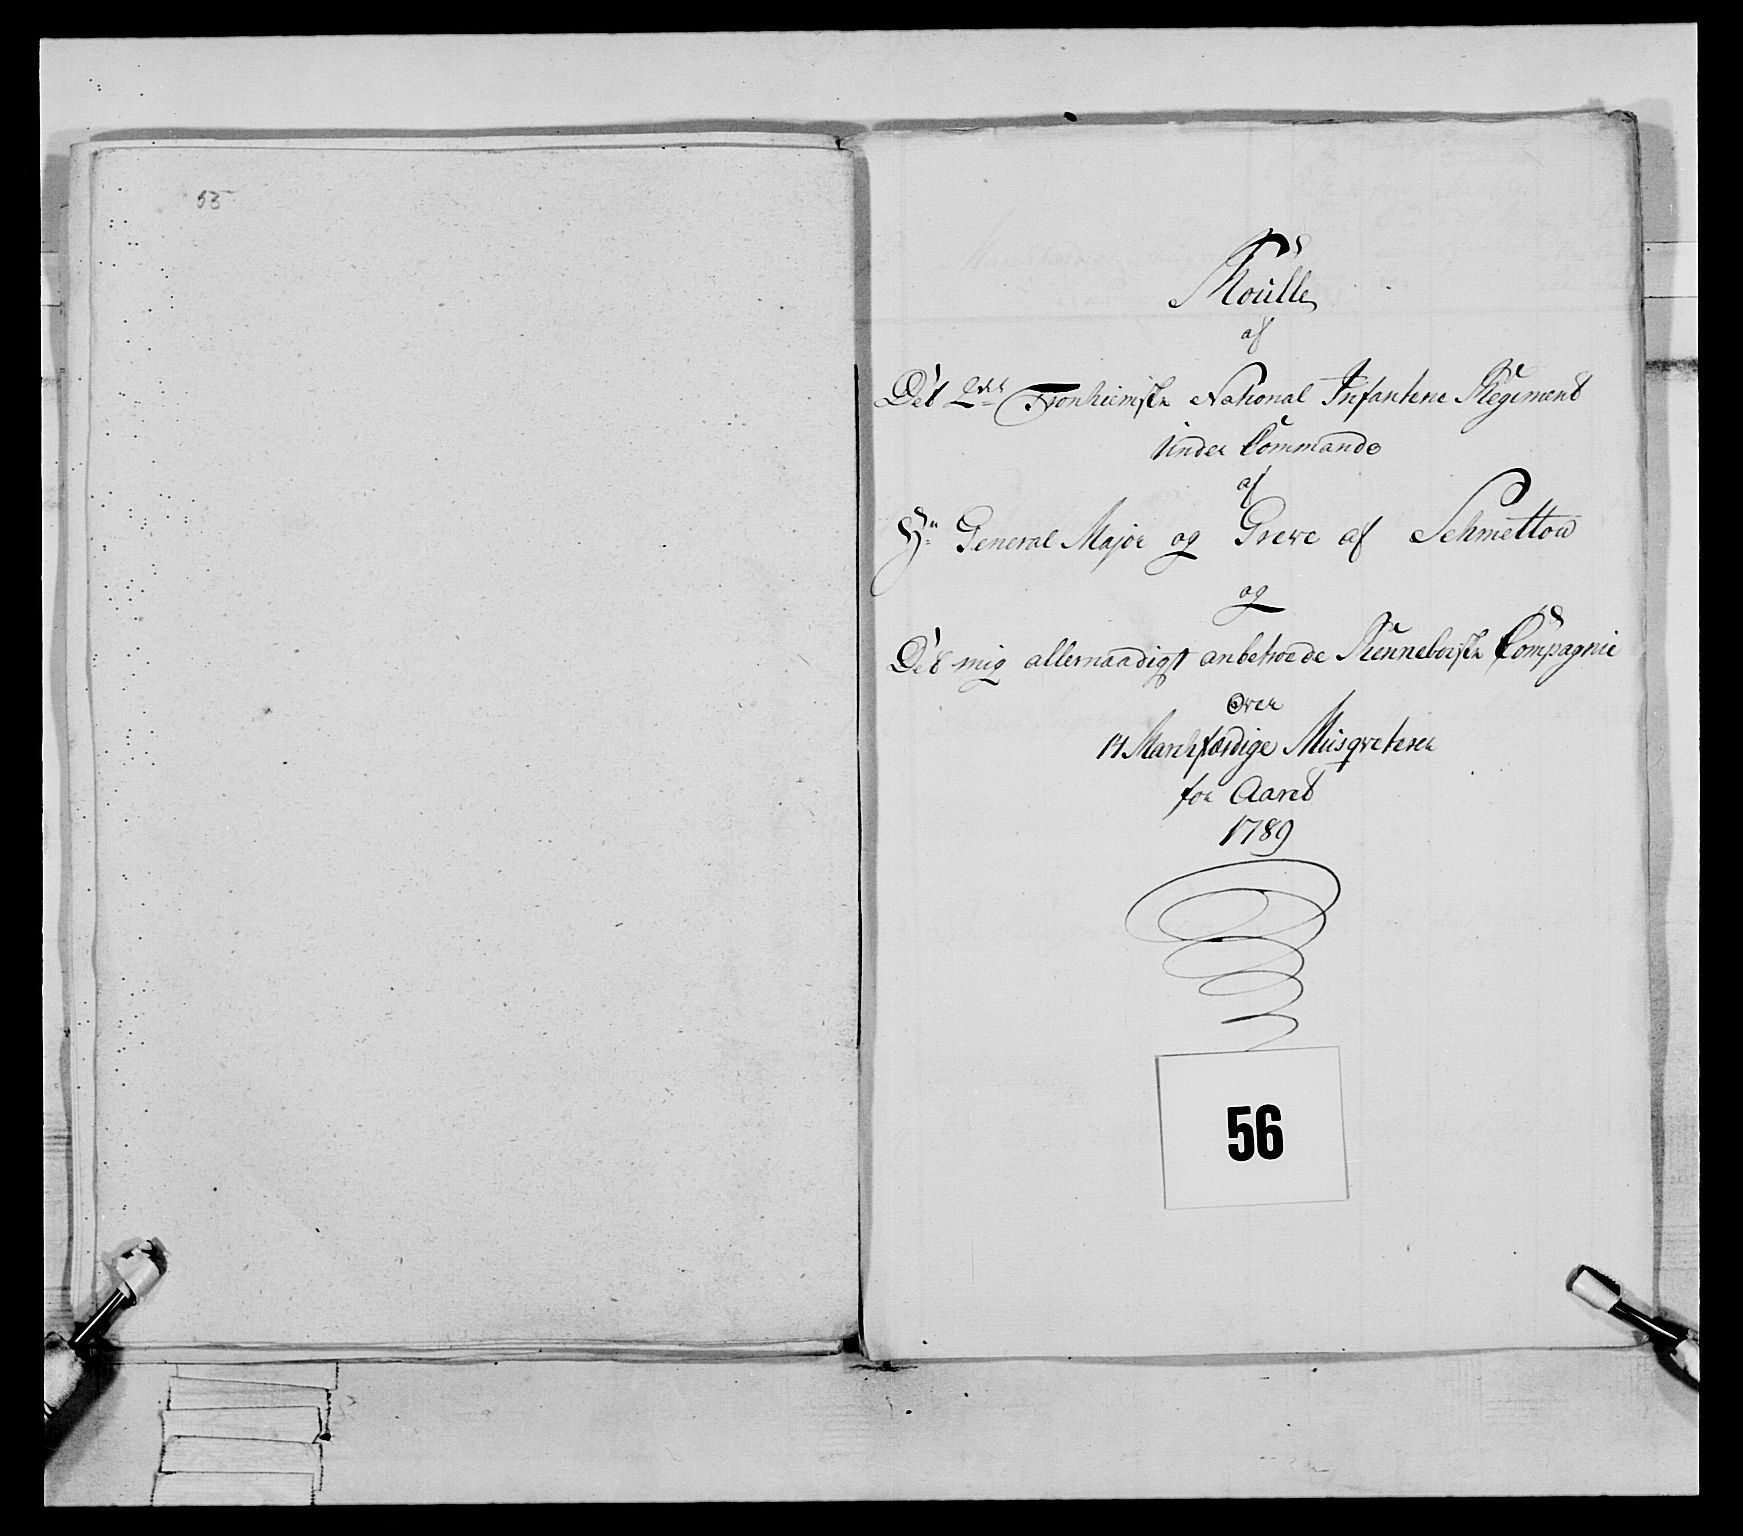 53
Roulle
af
Det 2det Tronhiemske National Infanterie Regiment
under Commando
af
Hr General Major og Greve af Schmettow
og
Det mig allernaadigst anbetroede Renneboeske Compagnie
over
14 Marchfærdige Musqveterer
for Aaret
1789
56